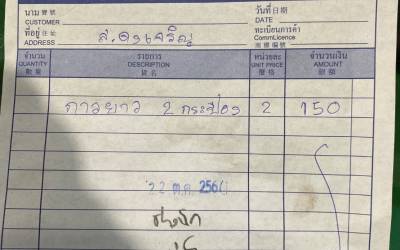 นาม 寶號 วันที่ 日期
CUSTOMER DATE
ที่อยู่ 住址 ส.อรุณเจริญ ทะเบียนการค้า
ADDRESS CommLicence
商標編號
จำนวน รายการ หน่วยละ จำนวนเงิน
QUANTITY DESCRIPTION UNIT PRICE AMOUNT
數量 貨名 價格 銀額
กาวยาว 2 กระป๋อง 2 150
22 ต.ค. 256